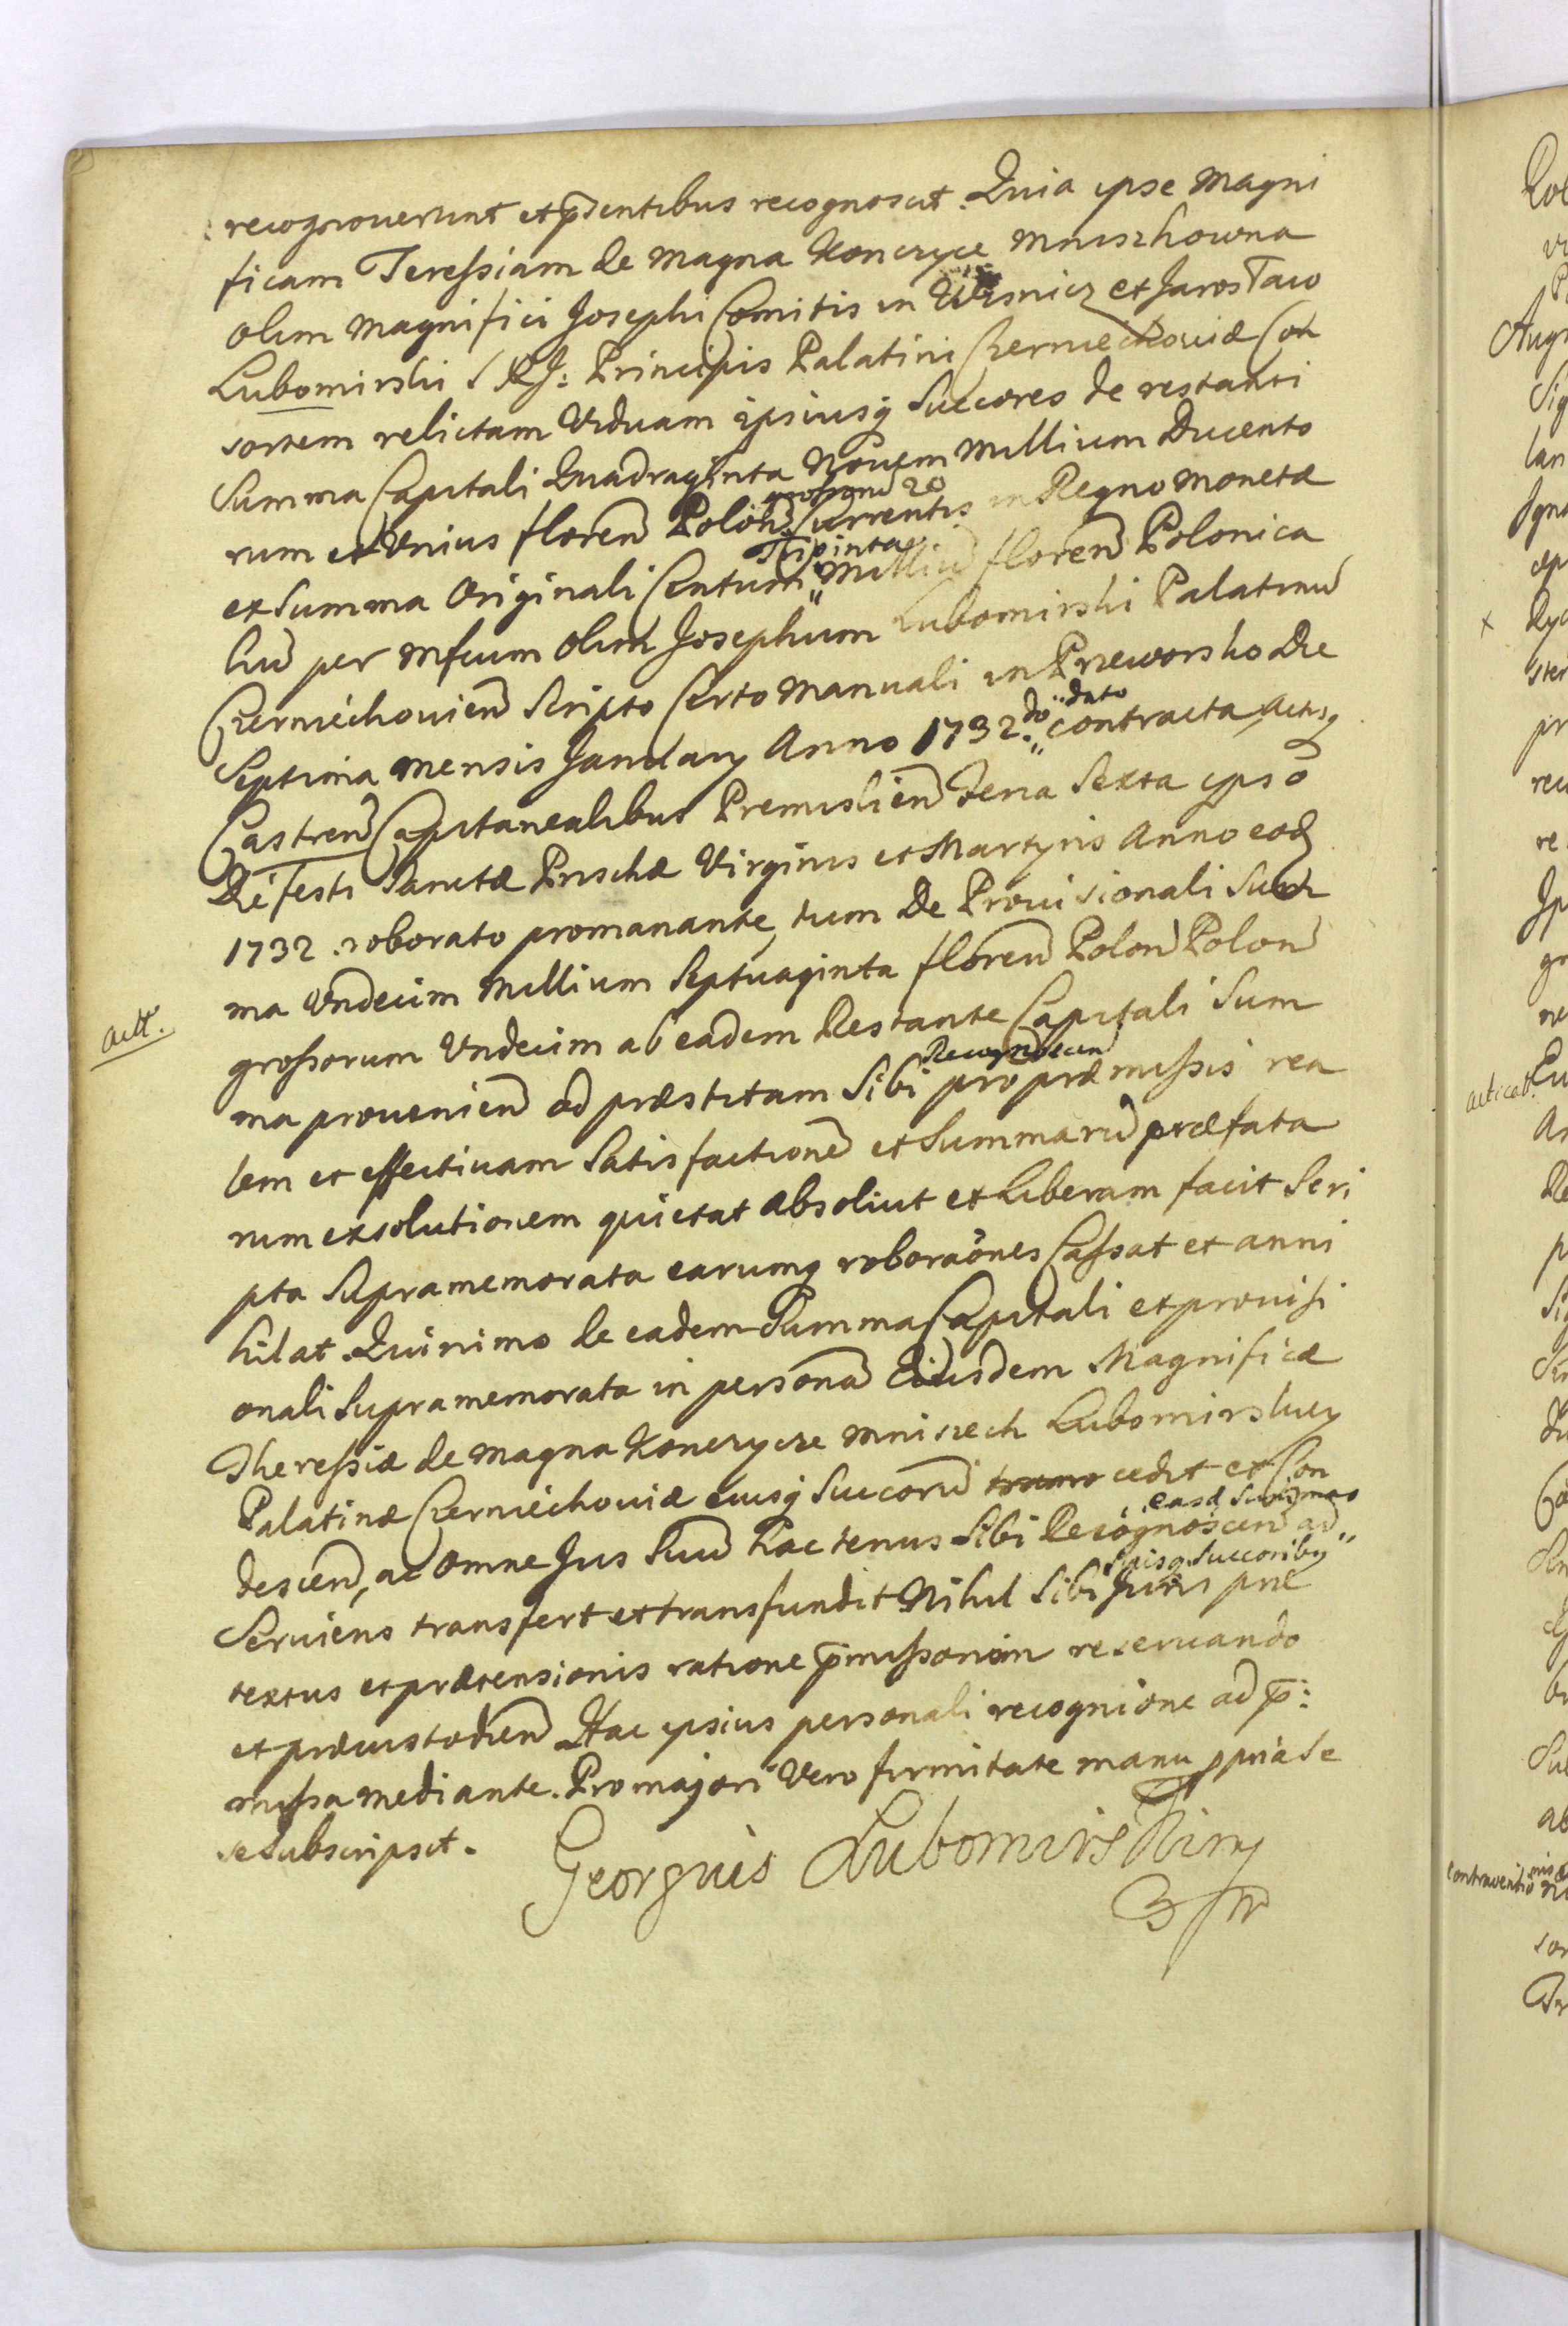 recognoverunt et p̄sentibus recognoscit. Quia ipse Magni
ficam Teressiam de Magna Konczyce Mniszkowna
olim Magnifici Josephi Comitis in Wisnicz et Jarosław
Lubomirski S R J: Principis Palatini Czerniechoviæ Con
sortem relictam Viduam ipsiusq Succores de restanti
Summa Capitali Quadraginta Novem Millium Ducento
rum et Unius floren Polon grossorum 20 Currentis in Regno Monetæ
ex Summa Originali Centum Triginta Milliu floren Polonica
liu per Mfcum olim Josephum Lubomirski Palatinu
Czerniechovien Scripto Certo Manuali in Przeworsko Die
Septima Mensis January Anno 1732do dato contracta Actisq
Castren Capitanealibus Premislien Feria Sexta ipso
Die festi Sanctæ Priscæ Virginis et Martyris Anno eod
1732 roborato promanante, tum de Provisionali Sum
ma Undecim Millium Septuaginta floren Polon Polon
grossorum Undecim ab eadem Restante Capitali Sum
actt.
ma provenien ad præstitam Sibi Recognoscen pro præmissis rea
lem et effectivam Satisfactione et Summaru præfata
rum exsolutionem quietat absolvit et Liberam facit Scri
pta Supramemorata earumq roboraones Cassat et anni
hilat. Quinimo de eadem Summa Capitali et provisi
onali Supramemorata in persona Eiusdem Magnificæ
Theressiæ de Magna Konczycze Mniszech Lubomirskiey
Palatinæ Czerniechoviæ eiusq Succoru cedit et Con
descen, ac omne Jus Suu hactenus Sibi Recognoscen easd Summas ad
Serviens transfert et transfundit Nihil Sibi Suisq Succoribq Juris præ
textus et prætensionis ratione p̄missorum reservando
et præcustodien Hac ipsius personali recognione ad p̄:
missa mediante. Pro majori vero firmitate manu ppria se
se Subscripsit.
Georgius Lubomirski mp